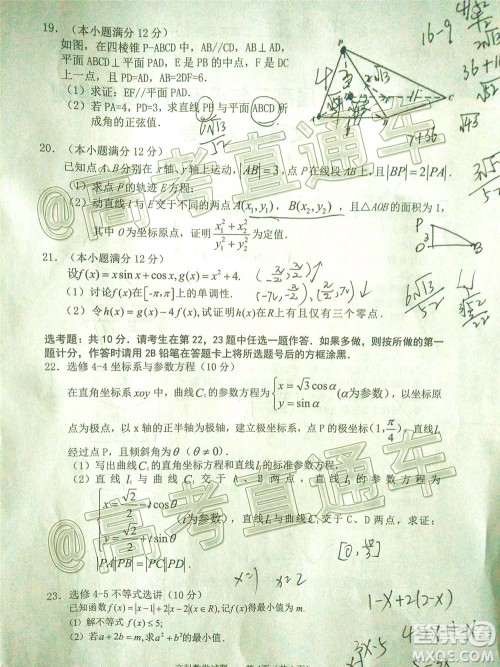 19. (本小题满分 12 分)
如图，在四棱锥 P-ABCD 中，AB//CD，AB⊥AD，
平面 ABCD⊥平面 PAD，E 是 PB 的中点，F 是 DC
上一点，且 PD=AD，AB=2DF=6.
(1) 求证：EF//平面 PAD.
(2) 若 PA=4，PD=3，求直线 PB 与平面 ABCD 所
成角的正弦值.
20. (本小题满分 12 分)
已知点 A、B 分别在 x 轴、y 轴上运动，|AB|=3，点 P 在线段 AB 上，且|BP|=2|PA|.
(1) 求点 P 的轨迹 E 方程；
(2) 动直线 l 与 E 交于不同的两点 A(x₁,y₁)，B(x₂,y₂)，且△AOB 的面积为 1，
其中 O 为坐标原点，证明 (x₁²+x₂²)/(y₁²+y₂²) 为定值.
21. (本小题满分 12 分)
设 f(x)=xsinx+cosx, g(x)=x²+4.
(1) 讨论 f(x) 在 [-π,π] 上的单调性.
(2) 令 h(x)=g(x)-4f(x), 试证明 h(x) 在 R 上有且仅有三个零点.
选考题：共 10 分. 请考生在第 22, 23 题中任选一题作答. 如果多做，则按所做的第一
题计分，作答时请用 2B 铅笔在答题卡上将所选题号后的方框涂黑.
22. 选修 4-4 坐标系与参数方程 (10 分)
在直角坐标系 xoy 中，曲线 C₁ 的参数方程为 {x=√3cosα y=sinα (α为参数)，以坐标原
点为极点，以 x 轴的正半轴为极轴，建立极坐标系，点 P 的极坐标 (1, π/4)，直线 l₁
经过点 P，且倾斜角为 θ (θ≠0).
(1) 写出曲线 C₁ 的直角坐标方程和直线 l₁ 的标准参数方程.
(2) 直线 l₁ 与曲线 C₁ 交于 A、B 两点，直线 l₂ 的参数方程为
{x=√2/2-tcosθ y=√2/2+tsinθ (t为参数)，直线 l₂ 与曲线 C₁ 交于 C、D 两点，求证：
|PA|·|PB|=|PC|·|PD|.
23. 选修 4-5 不等式选讲 (10 分)
已知函数 f(x)=|x-1|+2|x-2|(x∈R), 记 f(x) 得最小值为 m.
(1) 解不等式 f(x)≤5;
(2) 若 a+2b=m, 求 a²+b² 得最小值.
16-9
2√13
√43
7+36
6√13/52
x=1 x=2
1-x+2(2-x)
@高考直通车
@高考直通车